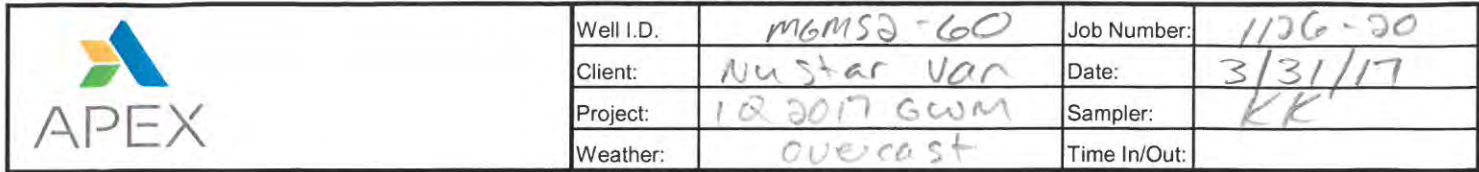 Well I.D. MGMS2-60 Job Number: 1126-20
Client: NuStar Van Date: 3/31/17
Project: 1Q 2017 GWM Sampler: KK
Weather: overcast Time In/Out:
APEX